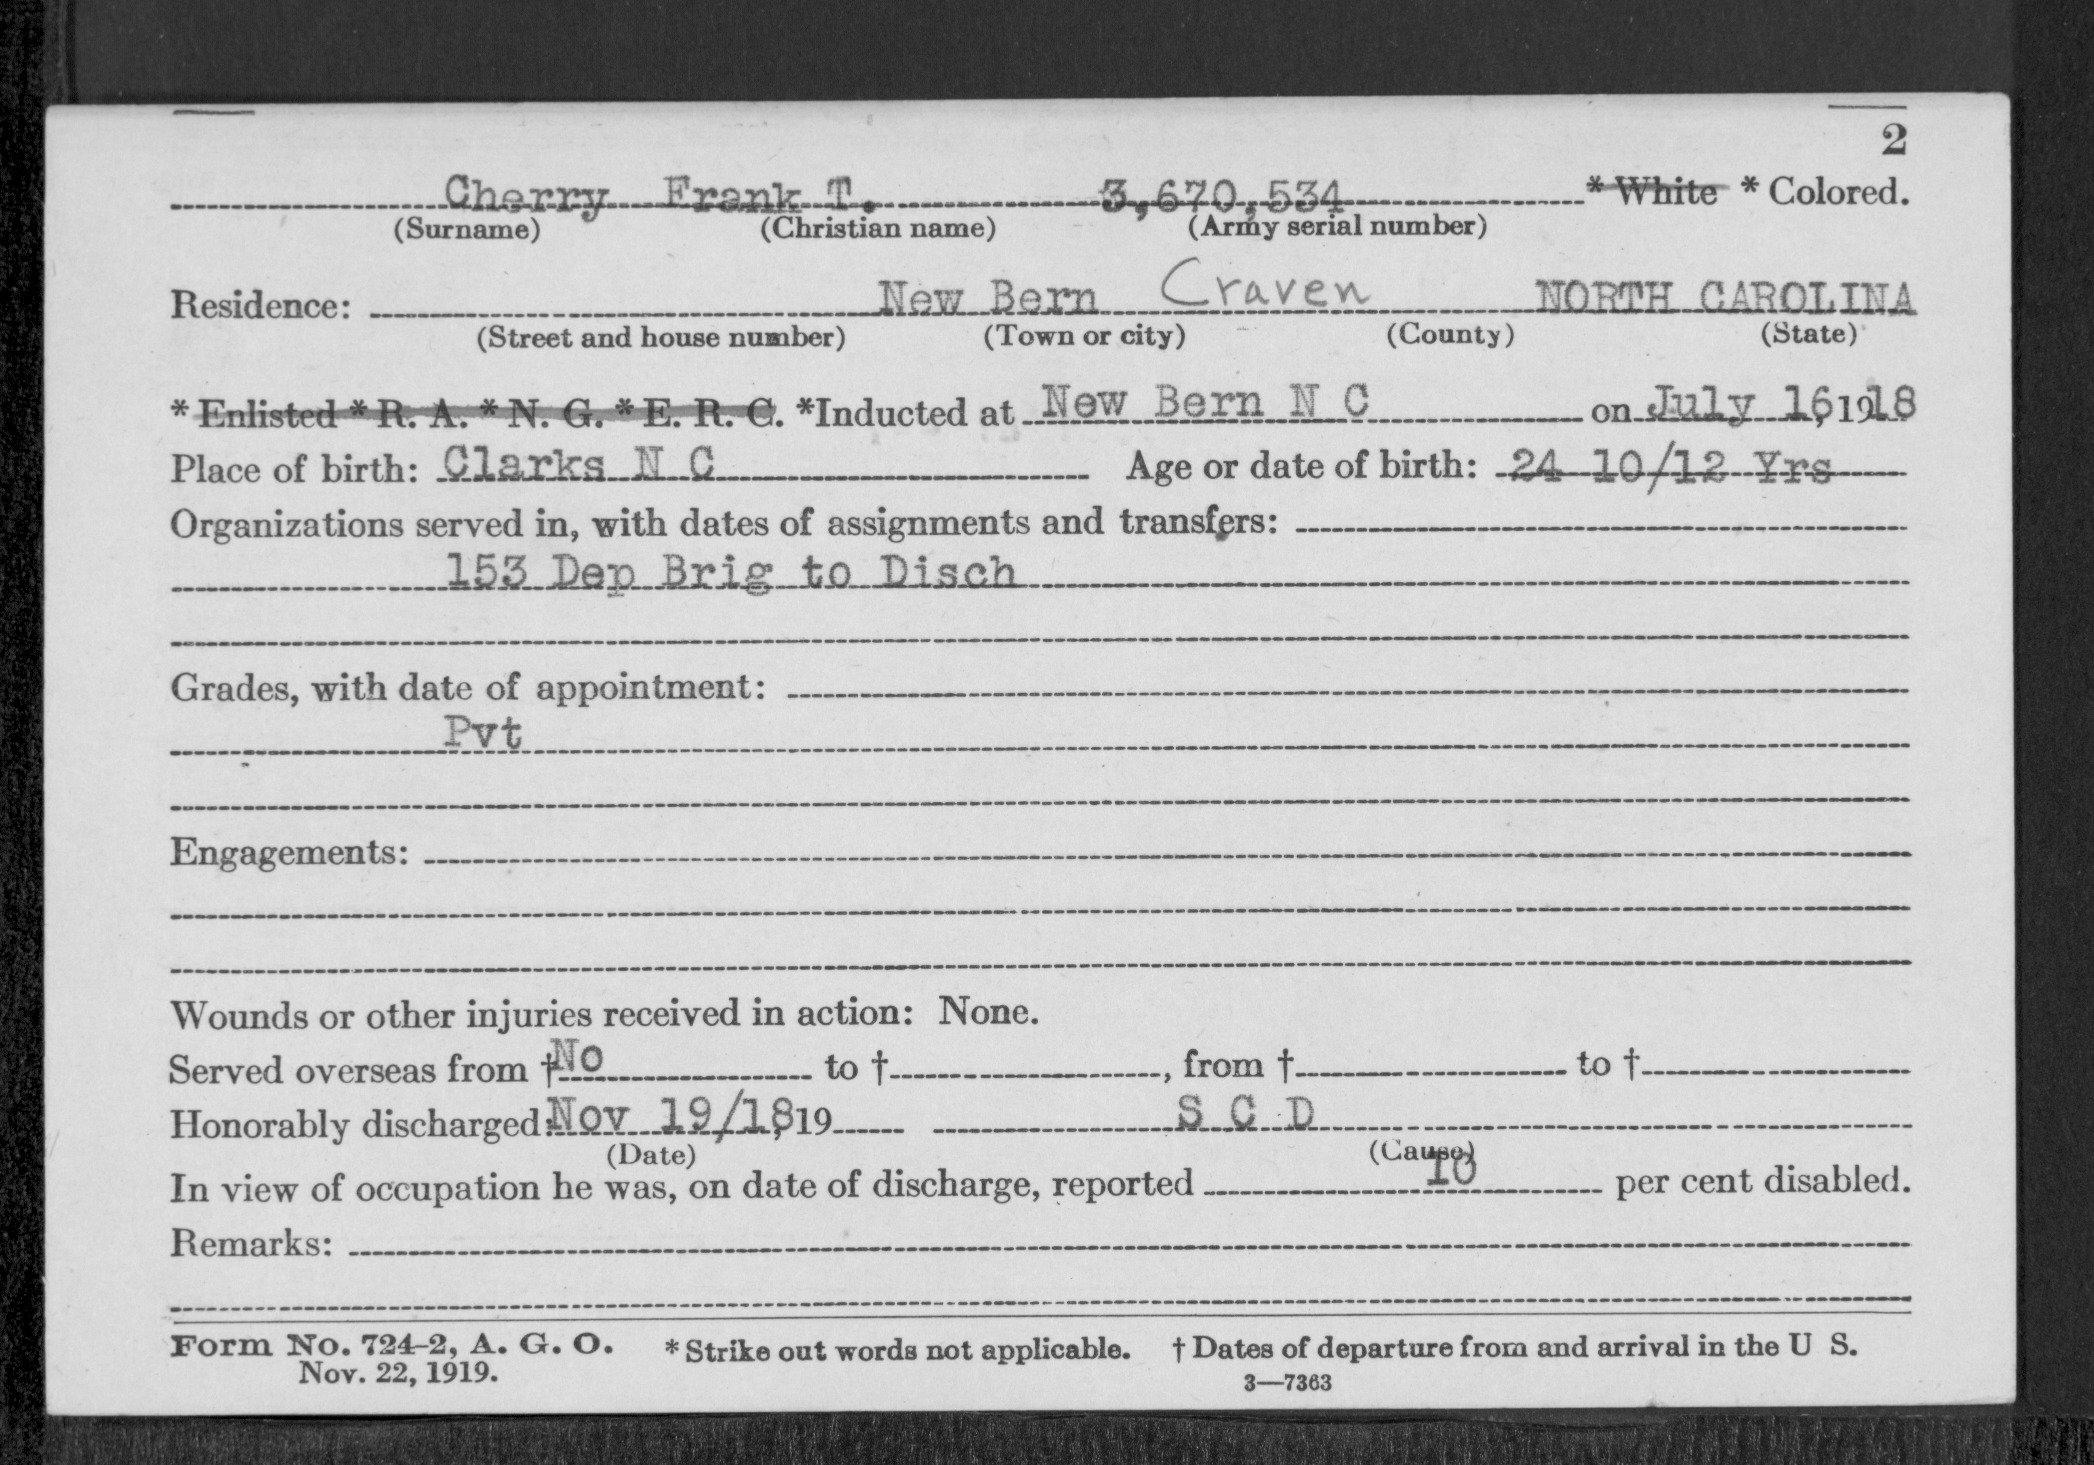 2
Cherry Frank T. 3,670,534 * White * Colored.
(Surname) (Christian name) (Army serial number)
Residence: New Bern Craven NORTH CAROLINA
(Street and house number) (Town or city) (County) (State)
* Enlisted * R. A. * N. G. * E. R. C. *Inducted at New Bern N C on July 16, 1918
Place of birth: Clarks N C Age or date of birth: 24 10/12 Yrs
Organizations served in, with dates of assignments and transfers:
153 Dep Brig to Disch
Grades, with date of appointment:
Pvt
Engagements:
Wounds or other injuries received in action: None.
Served overseas from † No to †, from † to †
Honorably discharged: Nov 19/18, 19 S C D
(Date) (Cause)
In view of occupation he was, on date of discharge, reported 10 per cent disabled.
Remarks:
Form No. 724-2, A. G. O. * Strike out words not applicable. † Dates of departure from and arrival in the U S.
Nov. 22, 1919. 3—7363